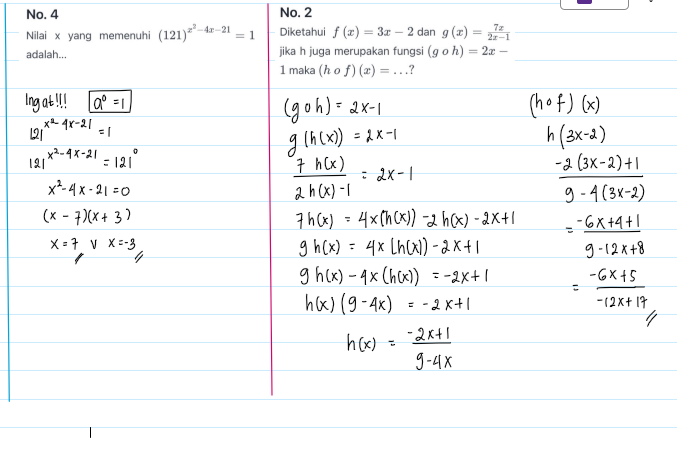 No. 4
Nilai x yang memenuhi (121)^{x²-4x-21} = 1
adalah...
Ingat!!! a⁰ = 1
121^{x²-4x-21} = 1
121^{x²-4x-21} = 121⁰
x²-4x-21 = 0
(x - 7)(x + 3)
x = 7 v x = -3
No. 2
Diketahui f (x) = 3x − 2 dan g (x) = 7x/2x−1
jika h juga merupakan fungsi (g o h) = 2x −
1 maka (h o f) (x) = ...?
(g o h) = 2x-1
g (h(x)) = 2x-1
7 h(x) / 2h(x)-1 = 2x-1
7h(x) = 4x(h(x)) -2h(x) -2x+1
9h(x) = 4x (h(x)) -2x+1
9h(x) - 4x(h(x)) = -2x+1
h(x) (9-4x) = -2x+1
h(x) = -2x+1 / 9-4x
(h o f) (x)
h (3x-2)
-2(3x-2)+1 / 9-4(3x-2)
= -6x+4+1 / 9-12x+8
= -6x+5 / -12x+17